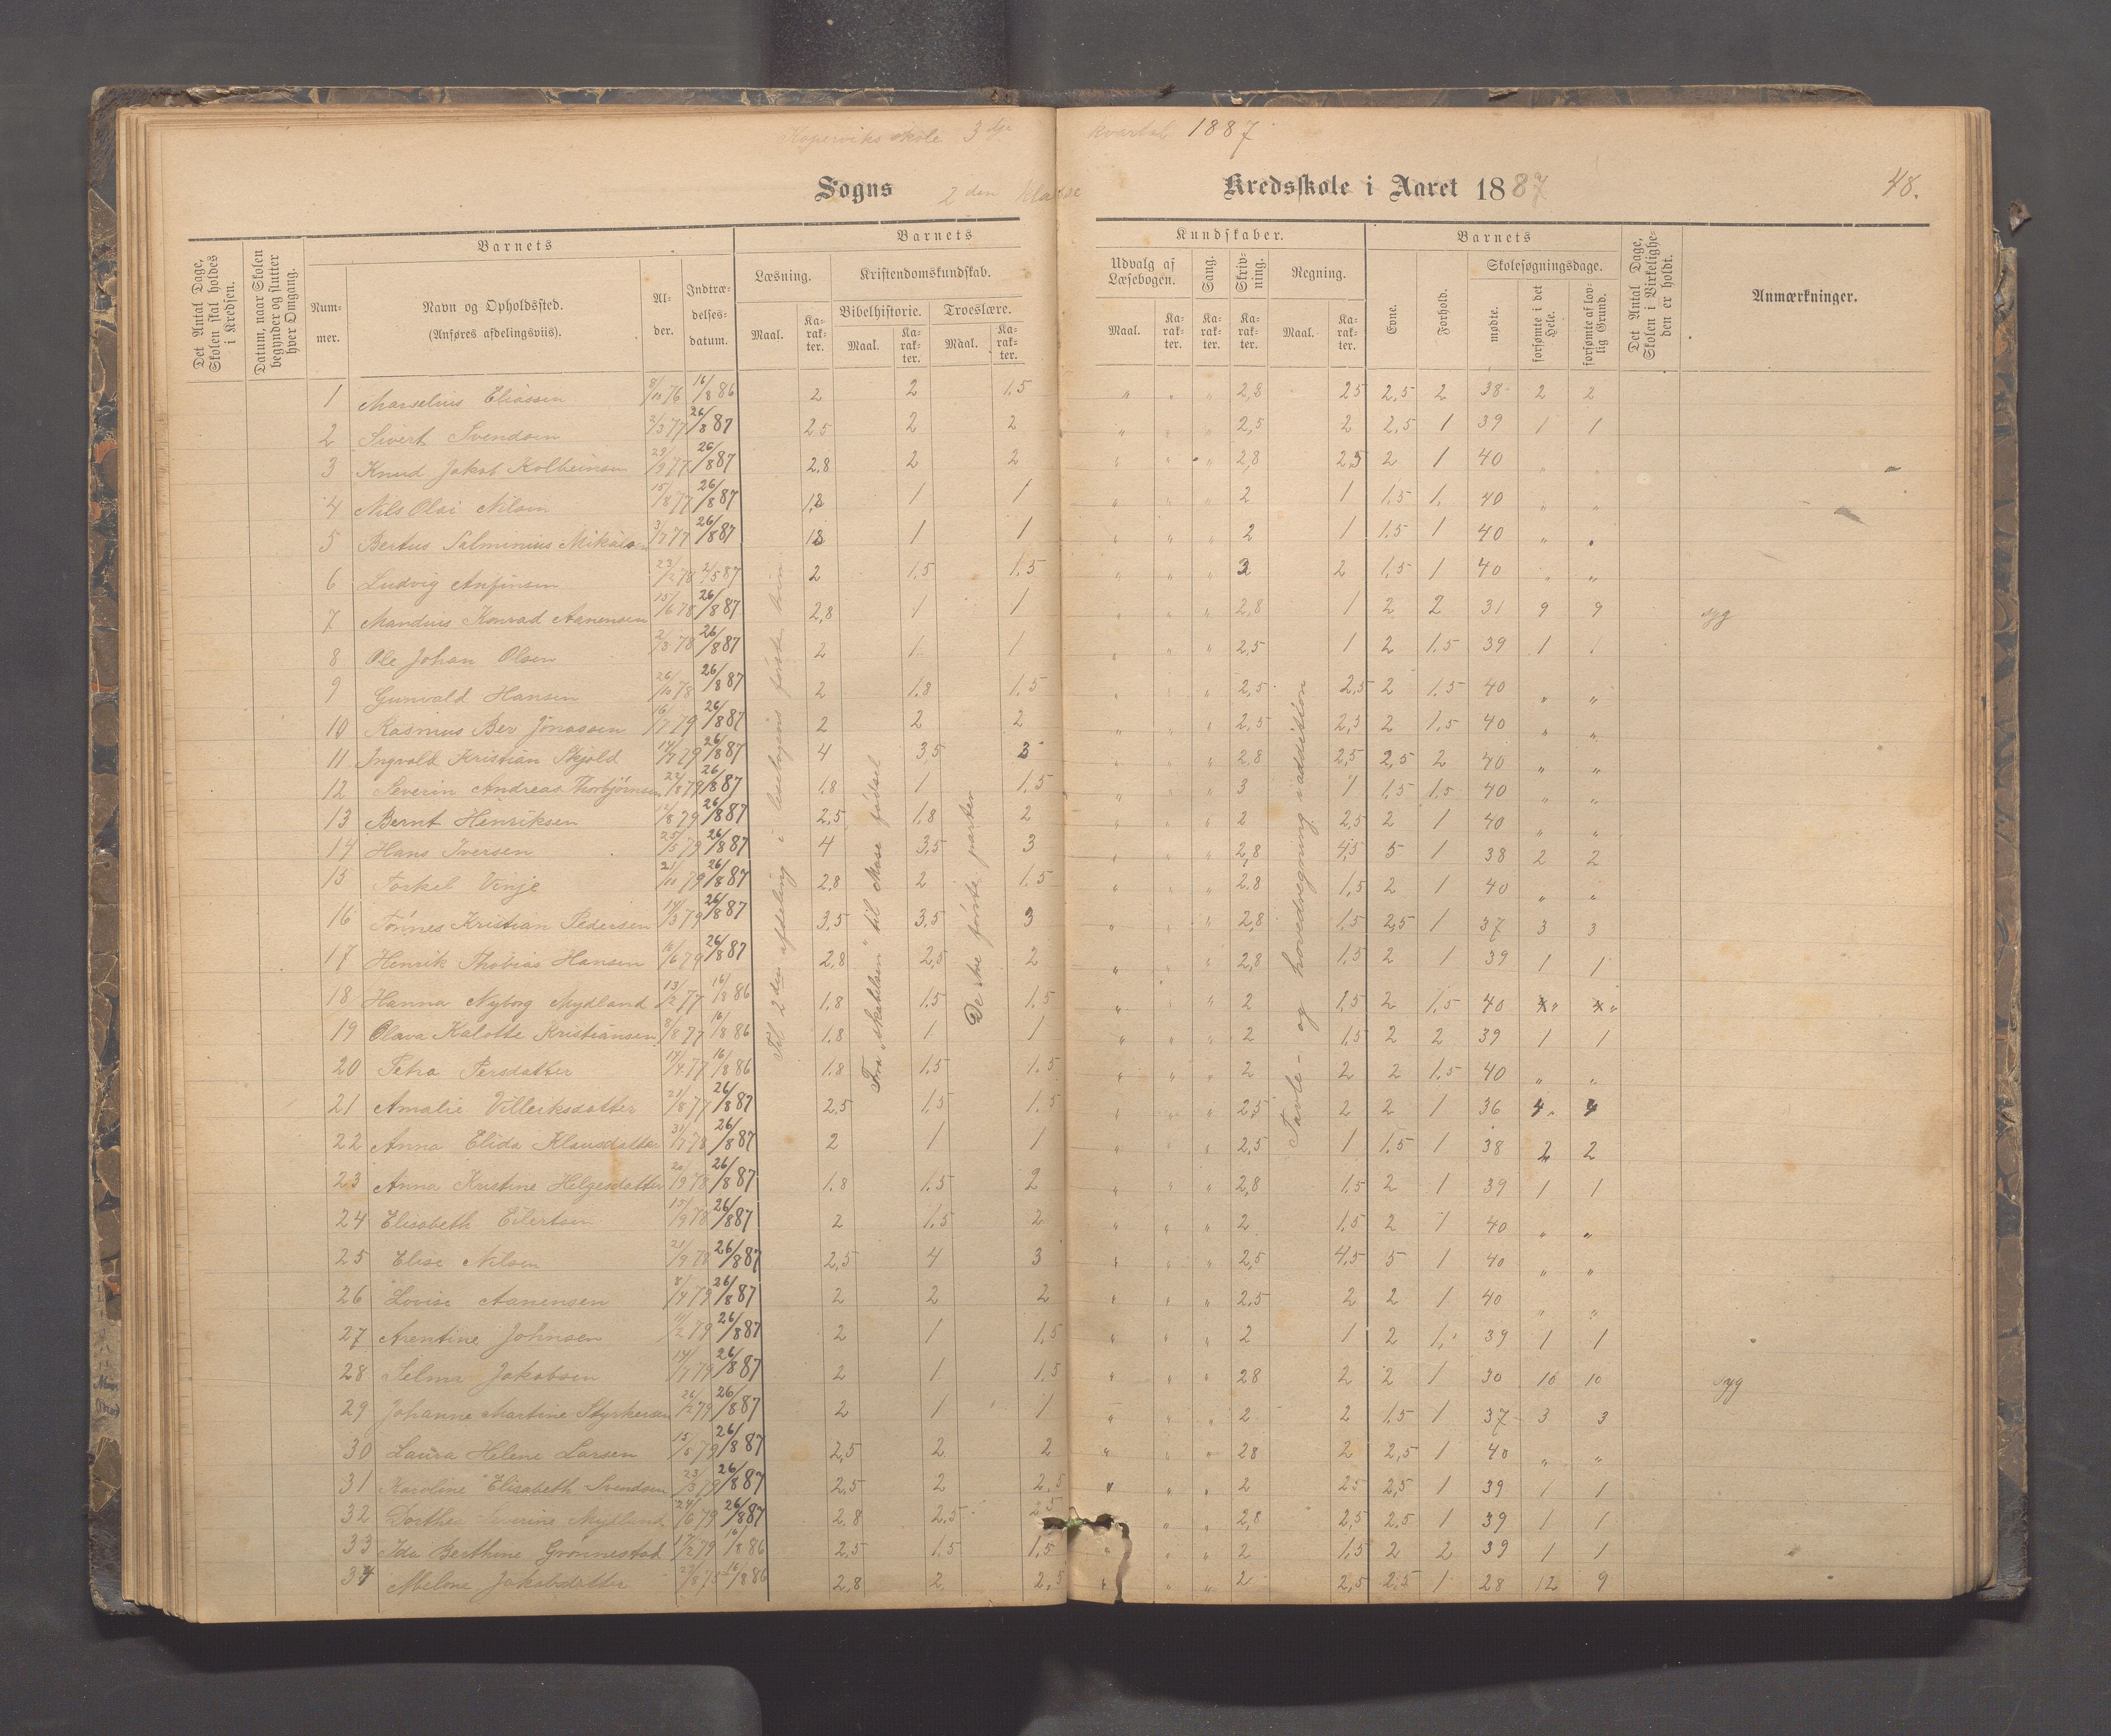 Koperviks skole 3 dje kvartal 1887
Sogns 2 den Klasse Kredsskole i Aaret 1887 48.
Det Antal Dage, Skolen skal holdes i Kredsen.
Datum, naar Skolen begynder og slutter hver Omgang.
Barnets
Nummer.
Navn og Opholdssted.
(Anføres afdelingsviis).
Alder.
Indtrædelsesdatum.
Barnets Kundskaber.
Læsning.
Maal. Karakter.
Kristendomskundskab.
Bibelhistorie.
Maal. Karakter.
Troeslære.
Maal. Karakter.
Udvalg af Læsebogen.
Maal. Karakter.
Sang. Karakter.
Skrivning. Karakter.
Regning.
Maal. Karakter.
Barnets
Evne.
Forhold.
Skolesøgningsdage.
mødte.
forsømte i det Hele.
forsømte af lovlig Grund.
Det Antal Dage, Skolen i Virkeligheden er holdt.
Anmærkninger.
Til 2 den afdeling i læsebogens første trin
Fra "skabelsen" til Mose fødsel
De tre første parter
Tavle- og hovedregning i addition
1 Marselius Eliassen 8/10 76 16/8 86 2 2 1,5 " " " 2,8 2,5 2,5 2 38 2 2
2 Sivert Svendsen 2/3 77 26/8 87 2,5 2 2 " " " 2,5 2 2,5 1 39 1 1
3 Knud Jakob Kolbeinsen 29/9 77 26/8 87 2,8 2 2 " " " 2,8 2,5 2 1 40 "
4 Nils Olai Nilsen 15/8 77 26/8 87 1,8 1 1 " " " 2 1 1,5 1 40 " "
5 Bertus Salminius Mikalsen 3/7 77 26/8 87 1,8 1 1 " " " 2 1 1,5 1 40 " "
6 Ludvig Anfinsen 23/2 78 2/5 87 2 1,5 1,5 " " " 3 2 1,5 1 40 " "
7 Mandius Konrad Aanensen 15/6 78 26/8 87 2,8 1 1 " " " 2,8 1 2 2 31 9 9 syg
8 Ole Johan Olsen 2/3 78 26/8 87 2 1 1 " " " 2,5 1 2 1,5 39 1 1
9 Gunvald Hansen 26/10 78 26/8 87 2 1,8 1,5 " " " 2,5 2,5 2 1,5 40 " "
10 Rasmus Ber Jonassen 16/7 79 26/8 87 2 2 2 " " " 2,5 2,5 2 1,5 40 " "
11 Ingvald Kristian Skjold 14/7 79 26/8 87 4 3,5 3 " " " 2,8 2,5 2,5 2 40 " "
12 Severin Andreas Thorbjørnsen 22/8 79 26/8 87 1,8 1 1,5 " " " 3 1 1,5 1,5 40 " "
13 Bernt Henriksen 12/8 79 26/8 87 2,5 1,8 2 " " " 2 2,5 2 1 40 " "
14 Hans Iversen 25/5 79 26/8 87 4 3,5 3 " " " 2,8 4,5 5 1 38 2 2
15 Torkel Vinje 21/10 79 26/8 87 2,8 2 1,5 " " " 2,8 1,5 2 1 40 " "
16 Tønnes Kristian Pedersen 14/3 79 26/8 87 3,5 3,5 3 " " " 2,8 1,5 2,5 1 37 3 3
17 Henrik Thobias Hansen 16/6 79 26/8 87 2,8 2,5 2 " " " 2,8 1,5 2 1 39 1 1
18 Hanna Nyborg Mydland 13/2 77 16/8 86 1,8 1,5 1,5 " " " 2 1,5 2 1,5 40 " "
19 Olava Kalotte Kristiansen 8/8 77 16/8 86 1,8 1 1 " " " 2 1,5 2 2 39 1 1
20 Petra Persdatter 14/4 77 16/8 86 1,8 1,5 1,5 " " " 2 2 2 1,5 40 " "
21 Amalie Villeiksdatter 21/8 77 26/8 87 2,5 1,5 1,5 " " " 2,5 2 2 1 36 4 4
22 Anna Elida Klausdatter 31/7 78 26/8 87 2 1 1 " " " 2,5 1 1,5 1 38 2 2
23 Anna Kristine Helgesdatter 20/9 78 26/8 87 1,8 1,5 2 " " " 2,8 1,5 2 1 39 1 1
24 Elisabeth Eilertsen 15/9 78 26/8 87 2 1,5 2 " " " 2 1,5 2 1 40 " "
25 Elise Nilsen 21/9 79 26/8 87 2,5 4 3 " " " 2,5 4,5 5 1 40 " "
26 Lovise Aanensen 8/4 79 26/8 87 2 2 2 " " " 2,5 2 2 1 40 " "
27 Arentine Johnsen 11/2 79 26/8 87 2 1 1,5 " " " 2 1 2 1 39 1 1
28 Selma Jakobsen 14/7 79 26/8 87 2 1 1,5 " " " 2,8 2 2 1 30 10 10 syg
29 Johanne Martine Styrkersen 26/2 79 26/8 87 2 1 1 " " " 2 2 1,5 1 37 3 3
30 Laura Helene Larsen 15/5 79 26/8 87 2,5 2 2 " " " 28 2 2,5 1 40 " "
31 Karoline Elisabeth Svendsen 23/3 79 26/8 87 2,5 2 2,5 " " " 2 2,5 2,5 1 39 1 1
32 Dorthea Severine Mydland 24/6 79 26/8 87 2,8 2,5 2,5 " " 2,8 2,5 2,5 1 39 1 1
33 Ida Berthine Grønnestad 17/2 79 16/8 86 2,5 1,5 1,5 " " " 2 1,5 2 2 39 1 1
34 Abelone Jakobsdatter 27/8 75 16/8 86 2,8 2 2,5 " " " 2 2,5 2,5 1 28 12 9